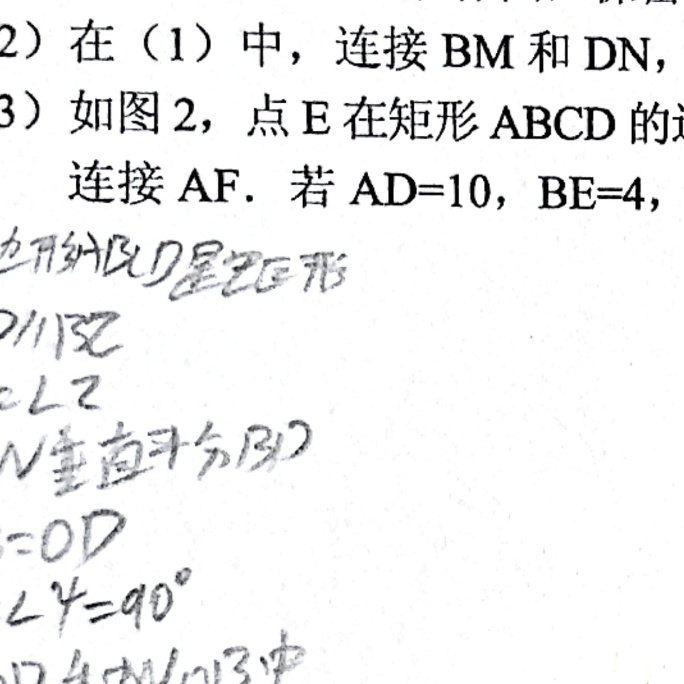 2）在（1）中，连接 BM 和 DN，
3）如图 2，点 E 在矩形 ABCD 的
连接 AF．若 AD=10，BE=4，
边形ABCD是矩形
D//BC
=∠2
N垂直平分BD
=OD
∠4=90°